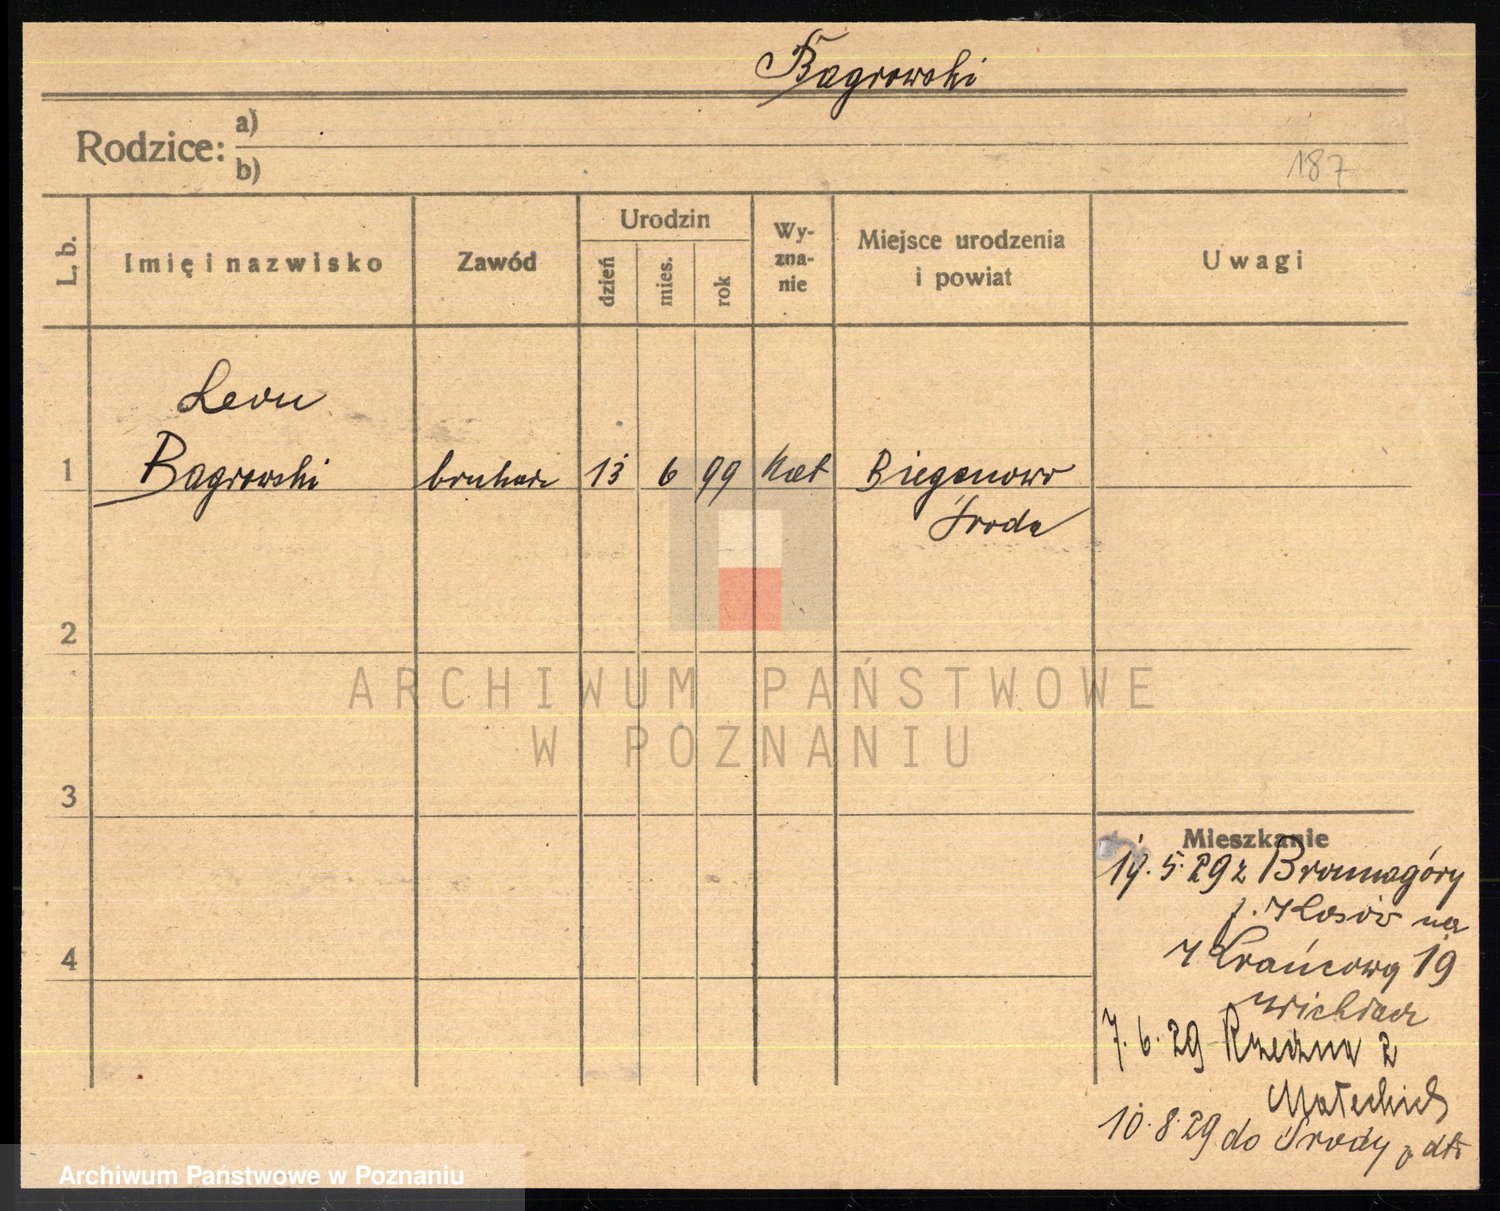 Bagrowski
Rodzice: a)
b)
187
L. b.
Imię i nazwisko
Zawód
Urodzin
dzień
mies.
rok
Wy-
zna-
nie
Miejsce urodzenia
i powiat
Uwagi
Leon
1 Bagrowski brukarz 13 6 99 kat Bieganowo
Środa
2
ARCHIWUM PAŃSTWOWE
W POZNANIU
3
Mieszkanie
19. 5. 29 z
na
4 Krańcową 19
7. 6. 29 2
10. 8. 29 do Środy
Archiwum Państwowe w Poznaniu